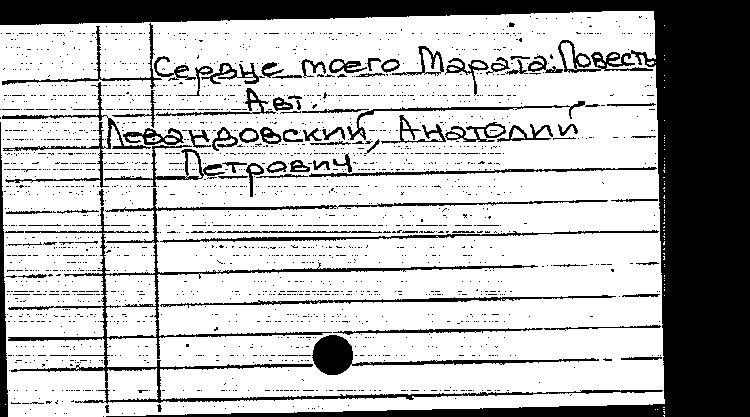 Сердце моего Марата: Повесть
Авт.:
Левандовский, Анатолий
Петрович